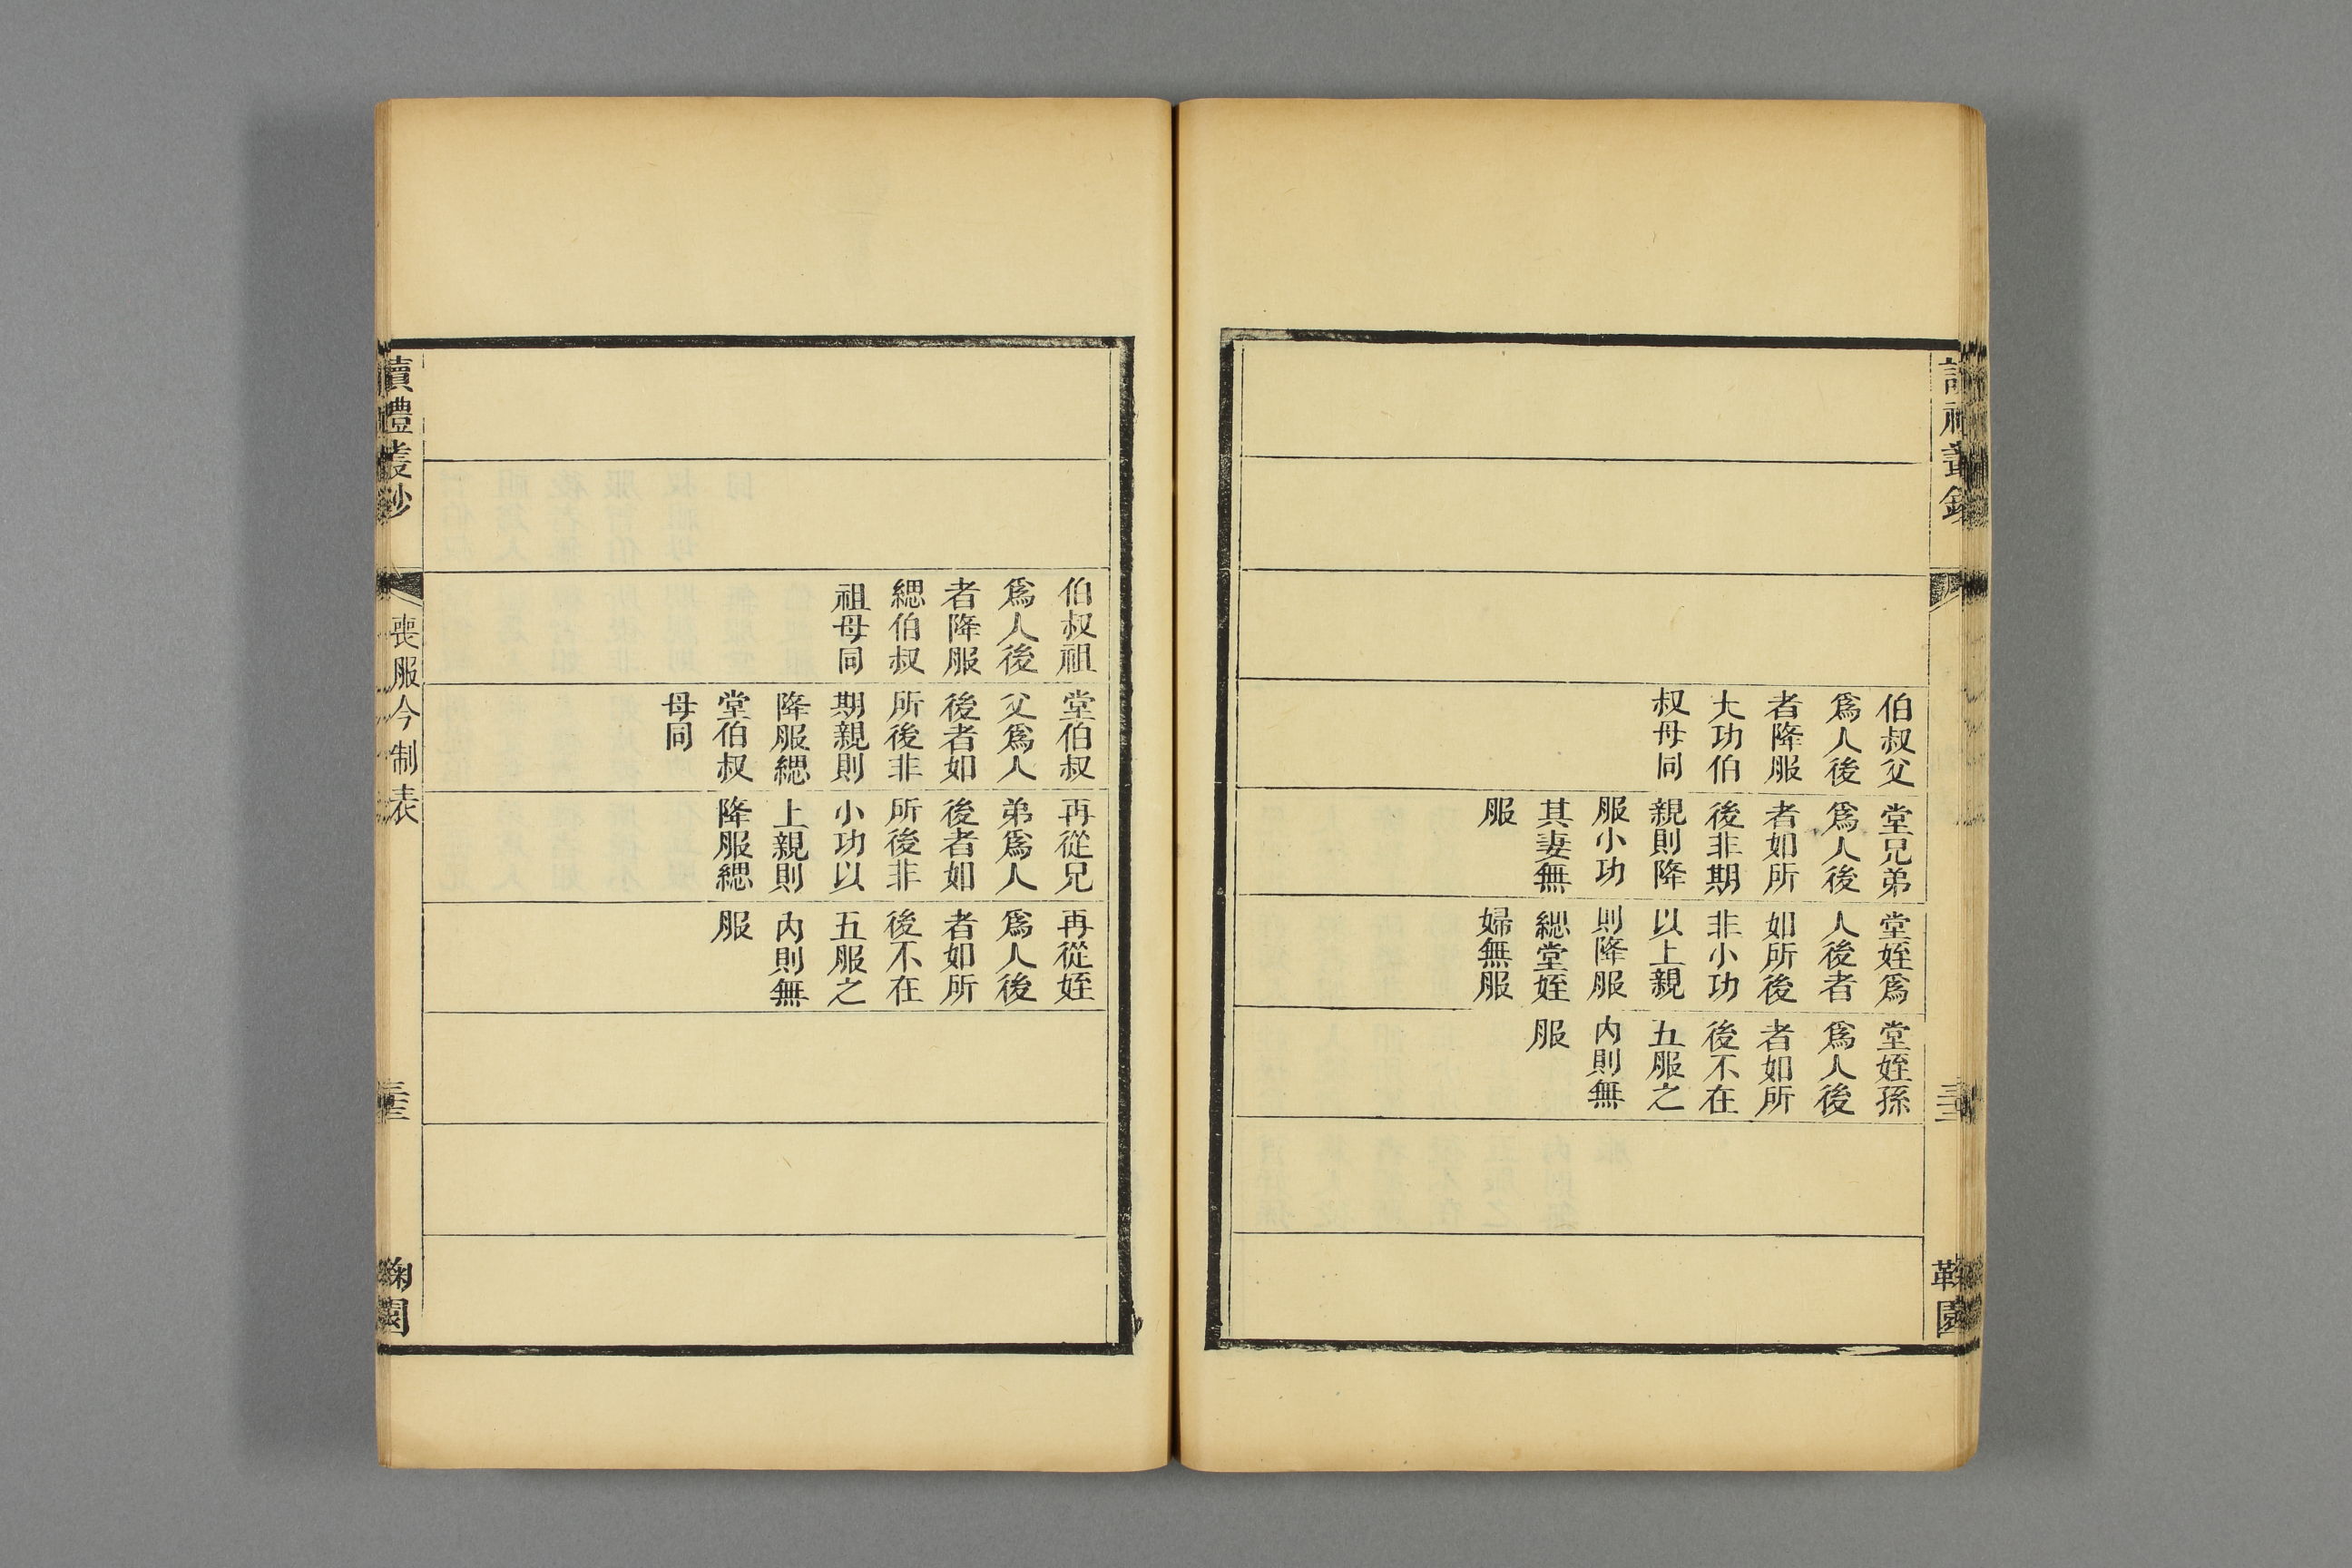 伯叔父
爲人後
者降服
大功伯
叔母同
堂兄弟
爲人後
者如所
後非期
親則降
服小功
其妻無
服
堂姪爲
人後者
如所後
非小功
以上親
則降服
緦堂姪
婦無服
堂姪孫
爲人後
者如所
後不在
五服之
內則無
服
伯叔祖
爲人後
者降服
緦伯叔
祖母同
堂伯叔
父爲人
後者如
所後非
期親則
降服緦
堂伯叔
母同
再從兄
弟爲人
後者如
所後非
小功以
上親則
降服緦
再從姪
爲人後
者如所
後不在
五服之
內則無
服
讀禮叢鈔
喪服今制表
鞠園